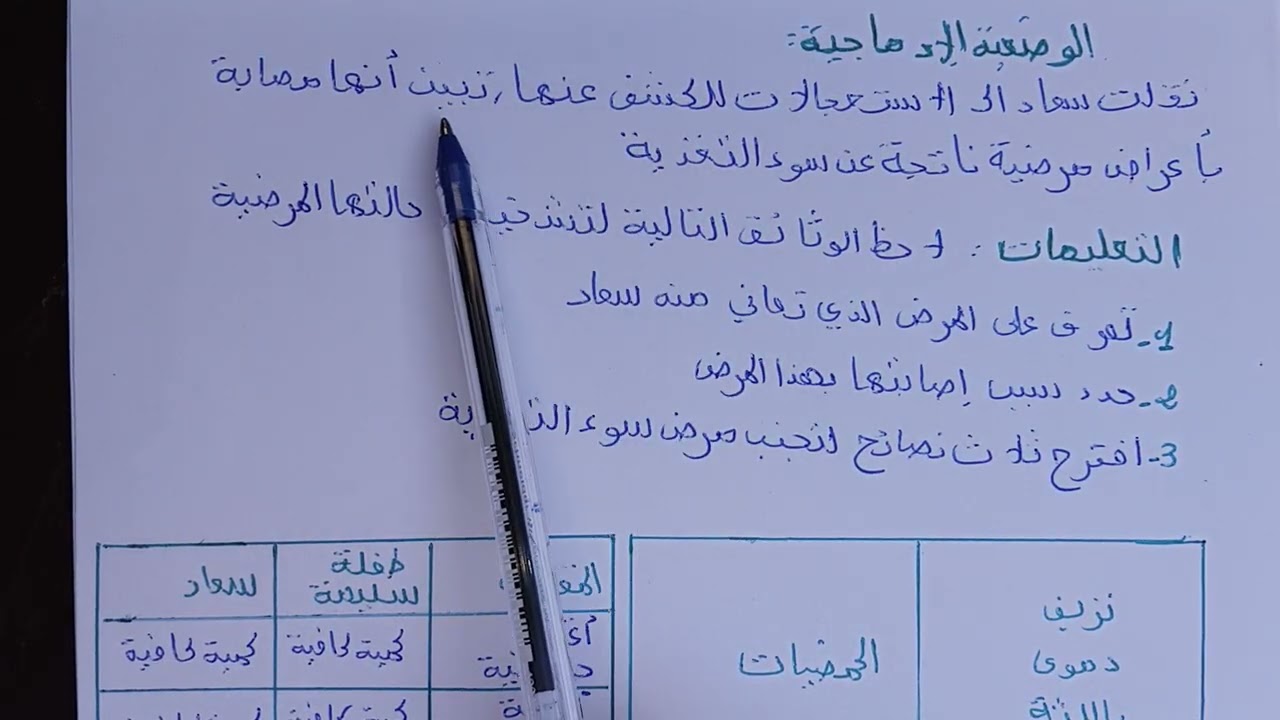 الوضعية الإدماجية:
نقلت سعاد الى الاستعجالات للكشف عنها, تبين أنها مصابة
بأعراض مرضية ناتجة عن سوء التغذية
التعليمات: لاحظ الوثائق التالية حالتها المرضية
1- تعرف على المرض الذي تعاني منه سعاد
2- حدد سبب إصابتها بهذا المرض
3- اقترح ثلاث نصائح لتجنب مرض سوء
نزيف
دموي
باللثة
الحمضيات
طفلة سليمة
سعاد
كمية كافية
كمية كافية